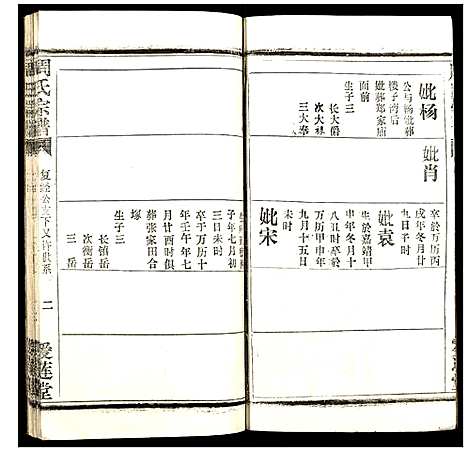 妣杨
公与杨妣葬
楼子湾后
妣葬郑家庙
面前
生子三
长大爵
次大禄
三大奉
妣肖
卒於万历丙
戌年冬月廿
九日子时
妣袁
生於嘉靖甲
申年冬月十
八丑时卒於
万历甲申年
九月十五日
未时
妣宋
子年七月初
三日未时
卒于万历十
年壬午年七
月廿四时俱
葬张家田合
塚
生子三
长镇岳
次衡岳
三岳
周氏宗谱
二
爱莲堂